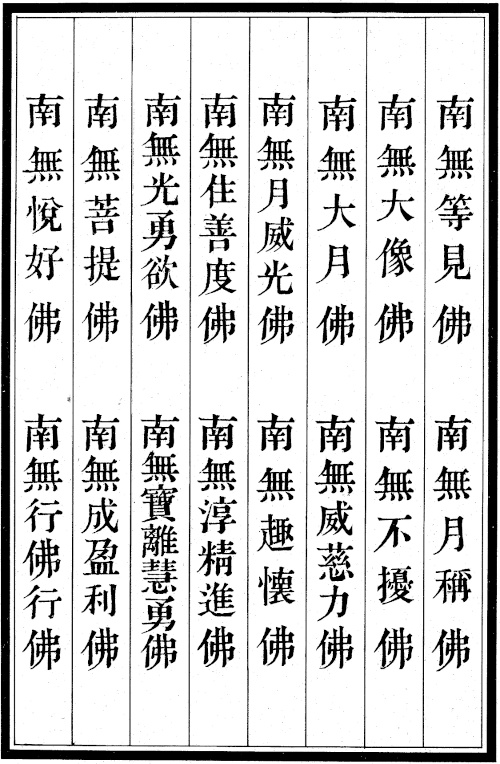 南無等見佛 南無月稱佛
南無大像佛 南無不擾佛
南無大月佛 南無威慈力佛
南無月威光佛 南無趣懷佛
南無住善度佛 南無淳精進佛
南無光勇欲佛 南無寶離慧勇佛
南無菩提佛 南無成盈利佛
南無悅好佛 南無行佛行佛